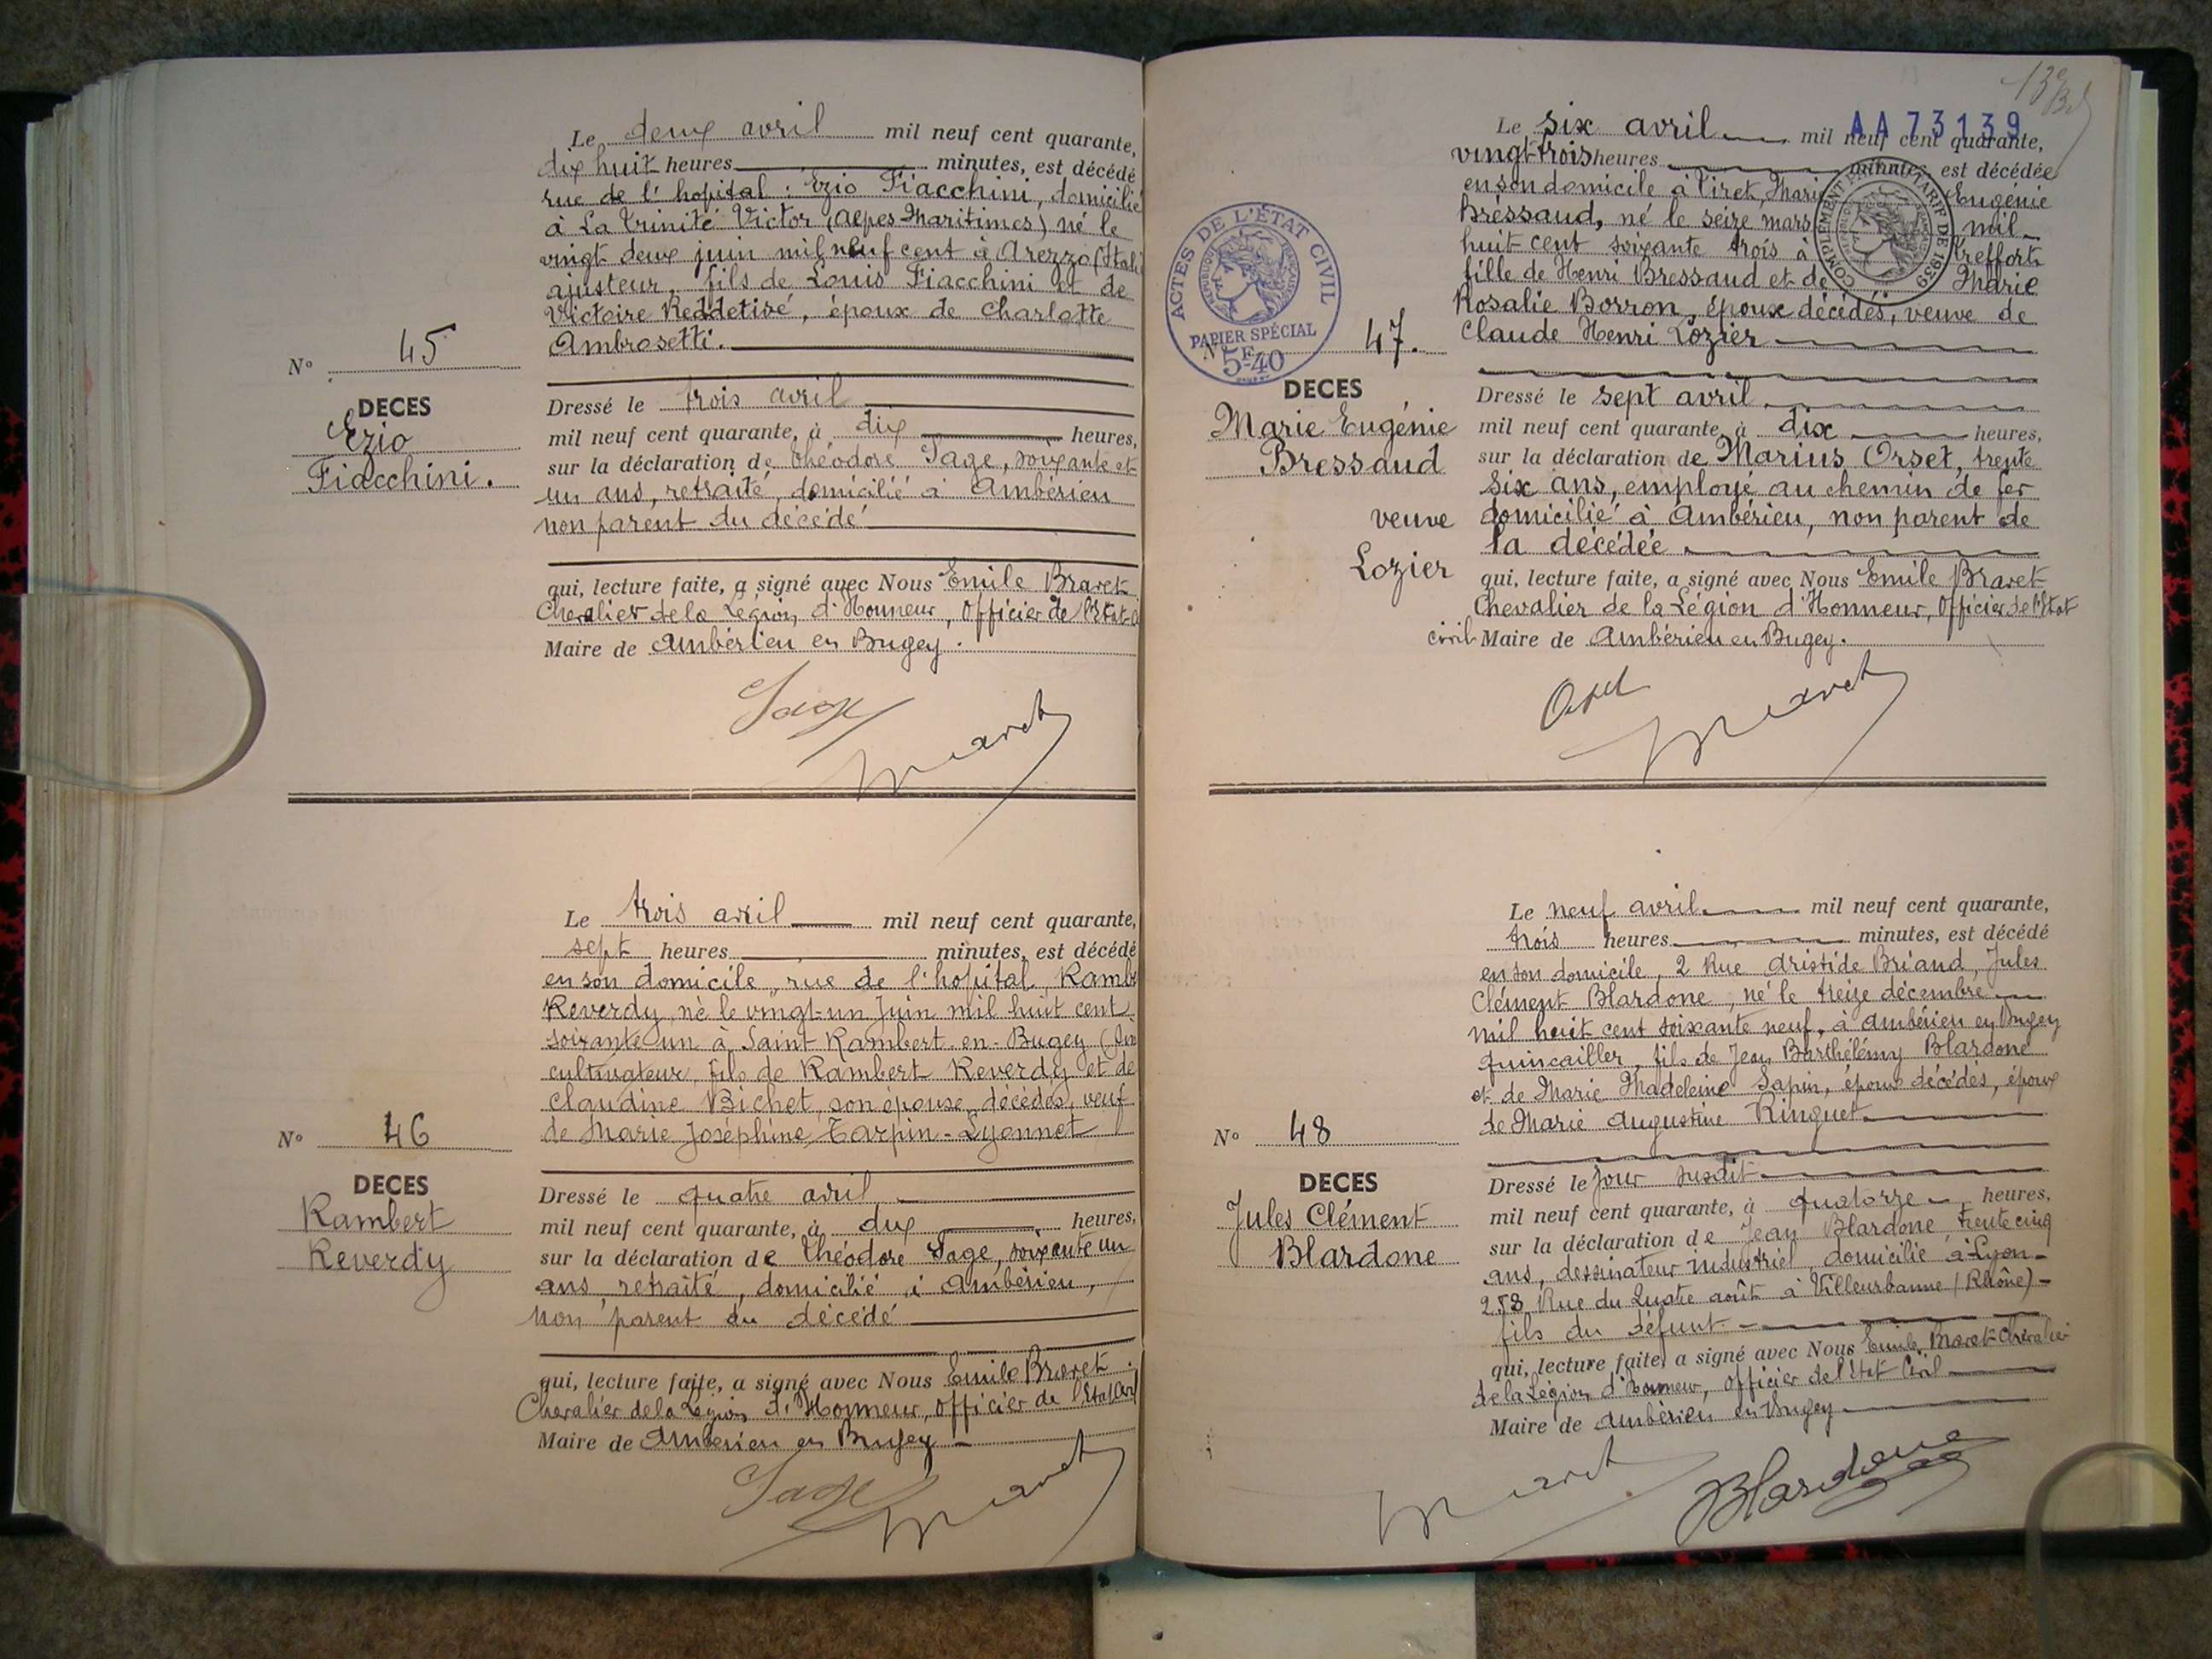 Le deux avril mil neuf cent quarante,
dix huit heures minutes, est décédé
rue de l'hopital : Ezio Fiacchini, domicilié
à La Trinité Victor (Alpes Maritimes) né le
vingt deux juin mil neuf cent à Arezzo (Itali
ajusteur, fils de Louis Fiacchini et de
Victoire Reddetivé, époux de Charlotte
Ambrosetti.
N° 45
DECES
Ezio
Fiacchini.
Dressé le trois avril
mil neuf cent quarante, à dix heures,
sur la déclaration de Théodore Sage, soixante et
un ans, retraité, domicilié à Ambérieu
non parent du décédé
qui, lecture faite, a signé avec Nous Emile Bravet
Chevalier de la Légion d'Honneur, Officier de l'Etat
Maire de Ambérieu en Bugey.
Sage
Le trois avril mil neuf cent quarante,
sept heures minutes, est décédé
en son domicile, rue de l'hopital, Rambe
Reverdy, né le vingt-un Juin mil huit cent
soixante un à Saint Rambert-en-Bugey
cultivateur, fils de Rambert Reverdy et de
Claudine Bichet, son épouse, décédés, veuf
de Marie Joséphine Tarpin-Lyonnet
N° 46
DECES
Rambert
Reverdy
Dressé le quatre avril
mil neuf cent quarante, à dix heures,
sur la déclaration de Théodore Sage, soixante un
ans, retraité, domicilié à Ambérieu,
non parent du décédé
qui, lecture faite, a signé avec Nous Emile Bravet
Chevalier de la Légion d'Honneur, Officier de l'Etat Civil
Maire de Ambérieu en Bugey
Sage
13e
AA 73139
Le six avril mil neuf cent quarante,
vingt trois heures minutes, est décédée
en son domicile à Tiret, Marie Eugénie
Bressaud, né le seize mars mil
huit cent soixante trois à Treffort
fille de Henri Bressaud et de Marie
Rosalie Borron, époux décédés, veuve de
Claude Henri Lozier
COMPLEMENTAIRE TARIF DE 1939
ACTES DE L'ÉTAT CIVIL
RÉPUBLIQUE FRANÇAISE
PAPIER SPÉCIAL
5F40
N° 47.
DECES
Marie Eugénie
Bressaud
veuve
Lozier
Dressé le sept avril
mil neuf cent quarante, à dix heures,
sur la déclaration de Marius Orset, trente
six ans, employé au chemin de fer
domicilié à Ambérieu, non parent de
la décédée
qui, lecture faite, a signé avec Nous Emile Bravet
Chevalier de la Légion d'Honneur, Officier de l'Etat
civil Maire de Ambérieu en Bugey.
Le neuf avril mil neuf cent quarante,
trois heures minutes, est décédé
en son domicile, 2 Rue Aristide Briand, Jules
Clément Blardone, né le treize décembre
mil huit cent soixante neuf, à Ambérieu en Bugey
quincailler, fils de Jean Barthélémy Blardone
et de Marie Madeleine Sapin, époux décédés, époux
de Marie Augustine Ringuet
N° 48
DECES
Jules Clément
Blardone
Dressé le jour susdit
mil neuf cent quarante, à quatorze heures,
sur la déclaration de Jean Blardone trente cinq
ans, dessinateur industriel, domicilié à Lyon
258 Rue du Quatre août à Villeurbanne (Rhône)
fils du défunt
qui, lecture faite, a signé avec Nous Emile Bravet Chevalier
de la Légion d'honneur, officier de l'Etat Civil
Maire de Ambérieu en Bugey
Blardone